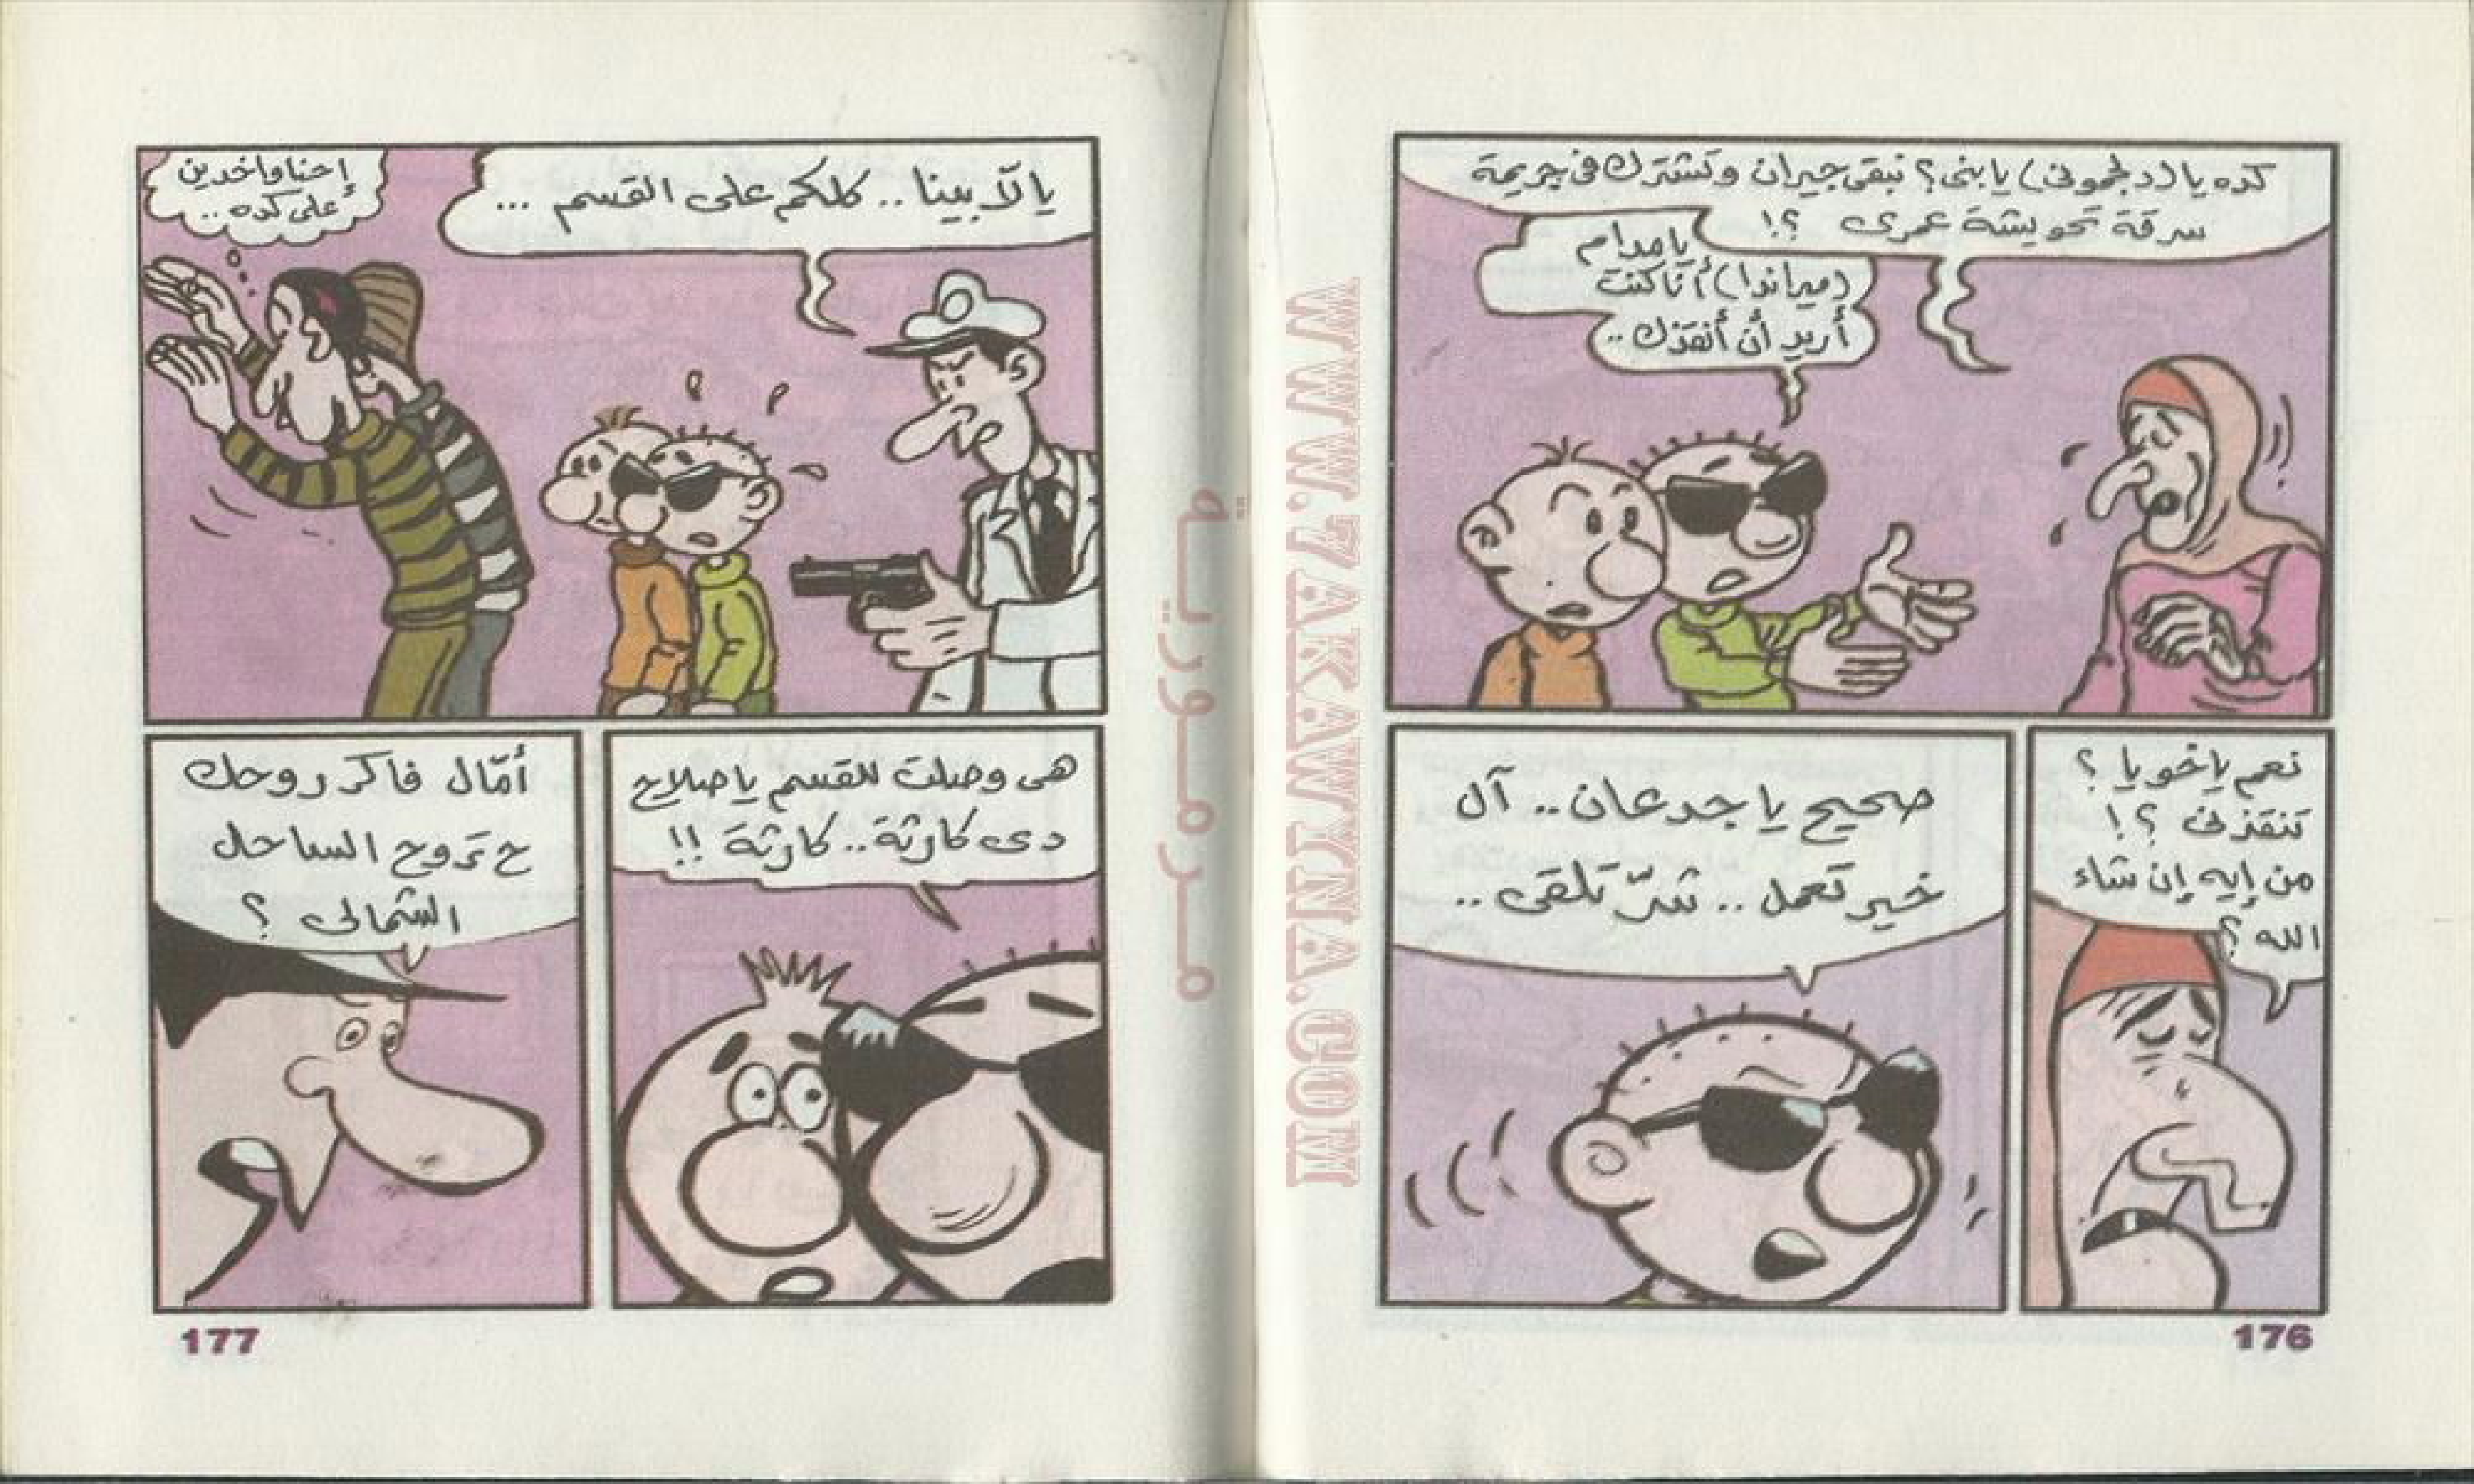 كده يا (دلجموني) يا بني؟ نبقى جيران وتشترك في جريمة
سرقة تحويشة عمرى ؟!
يا مدام
(ميراندا) أنا كنت
أريد أن أنقذك ..
نعم يا خويا ؟
تنقذني ؟!
من إيه إن شاء
الله ؟
صحيح يا جدعان .. آل
خير تعمل .. شرّ تلقى ..
176
يالّا بينا .. كلكم على القسم ...
إحنا واخدين
على كده ..
هى وصلت للقسم يا صلاح
دى كارثة .. كارثة !!
أمّال فاكر روحك
ح تروح الساحل
الشمالى ؟
177
مرمورية
WWW.7AKAWINA.COM